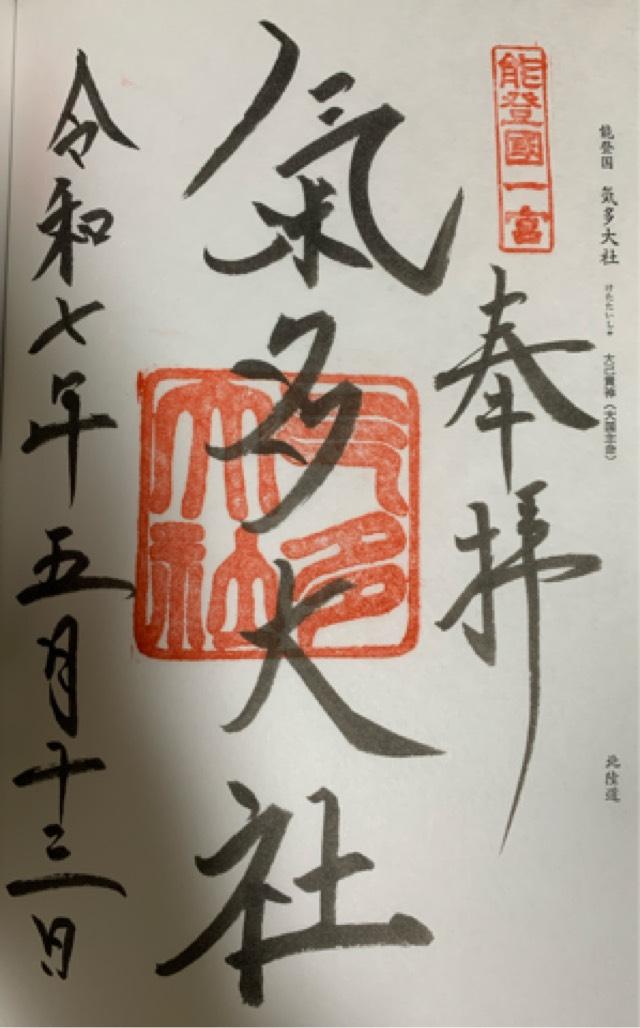 能登国 気多大社 けたたいしゃ 大己貴神(大国主命) 北陸道
能登國一宮
奉拝
氣多大社
気多大社
令和七年五月十三日